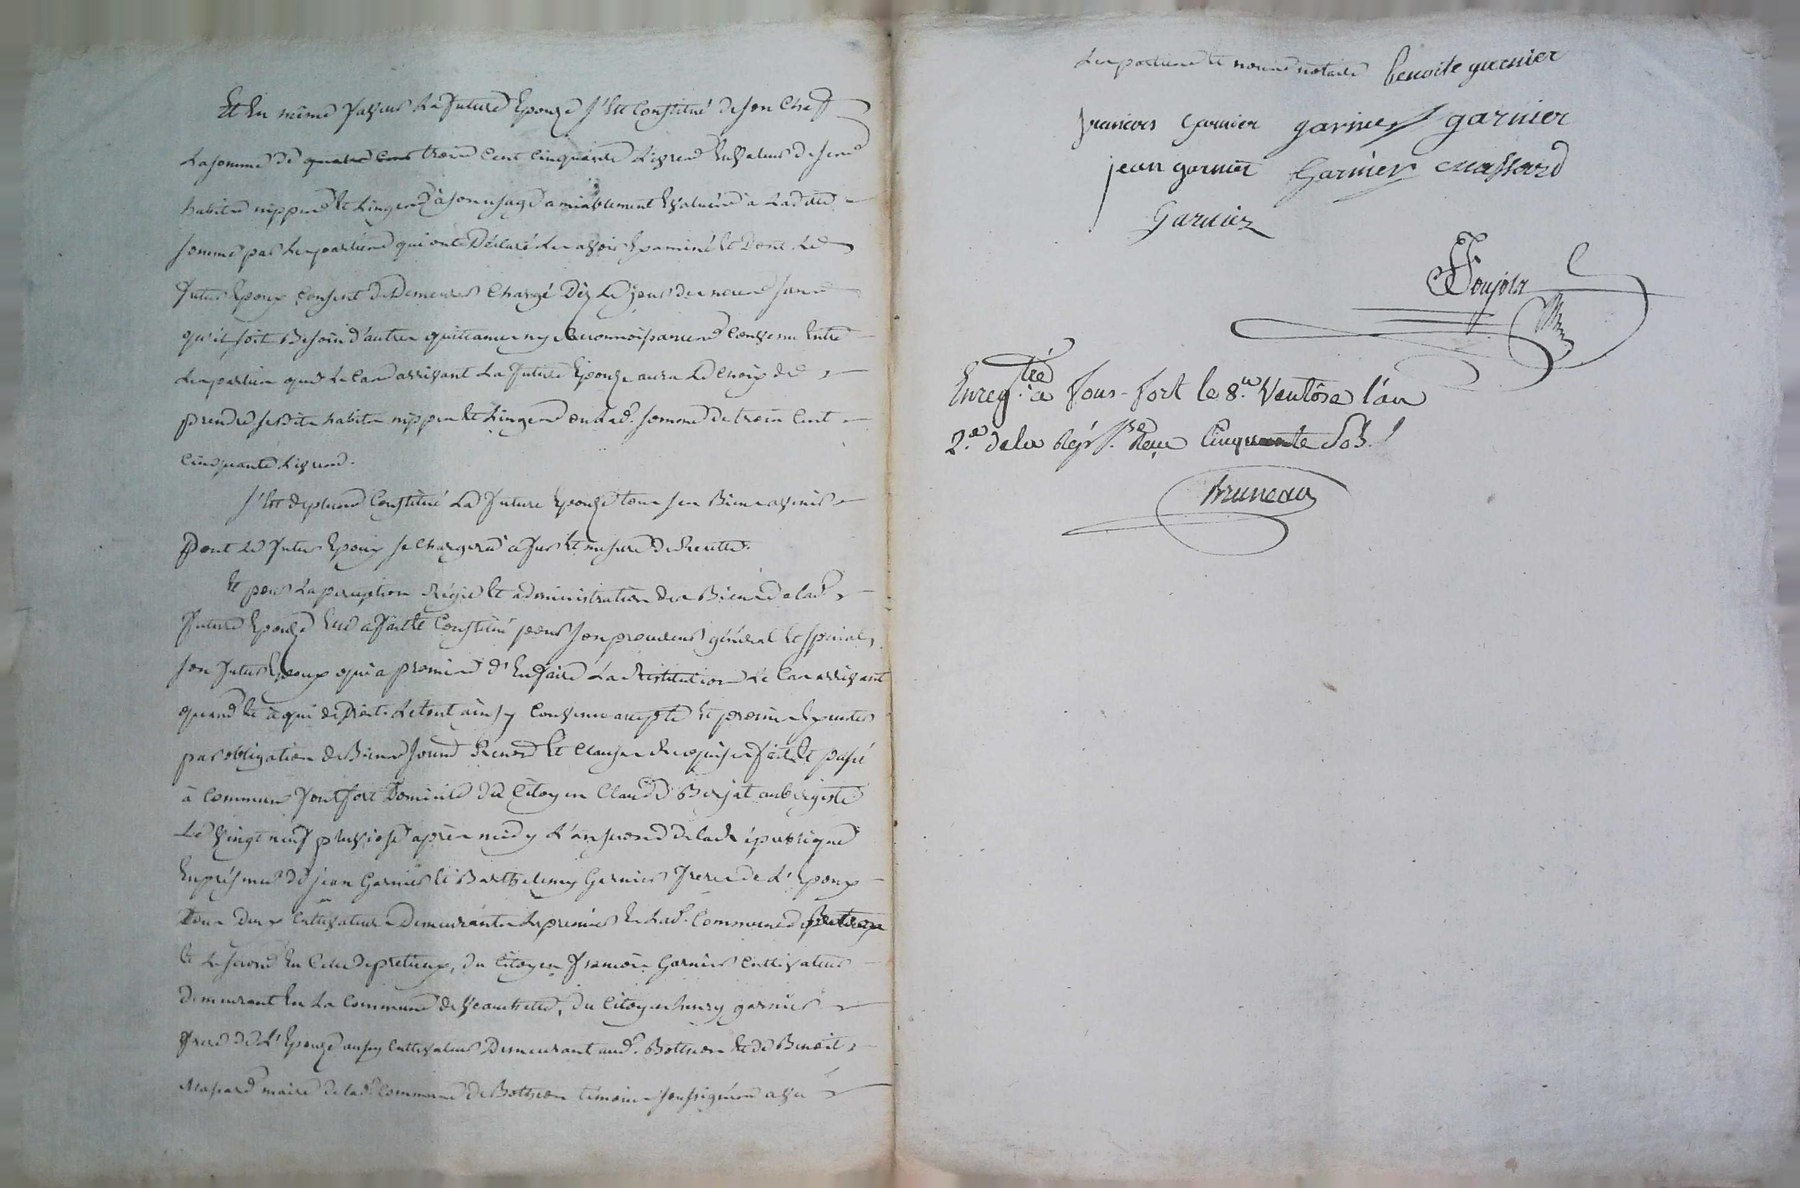 Et En même faveur La future Epouze s'Est Constitué de son Chef
La somme de quatre cent trois Cent Cinquante Livres En valeur de ses
habits nippes et Linges à son usage amiablement Evalués a Ladite
somme par Les parties qui ont Déclaré Les avoir Examiné et Dont Le
futur Epoux Consent de Demeurer Chargé Dèz Le jour des noces sans
qu'il soit Besoin d'autres quittances ny Reconnoissances Convenu Entre
Les parties que Le Cas arrivant La future Epouze aura Le Choix de
prendre sesdits habits nippes et Linges ou Lad. somme de trois Cent
Cinquante Livres.
S'Est de plus Constitué La future Epouze tous ses Biens avenir
Dont Le futur Epoux se Chargera a fur et mesure de Recette.
Et pour La perception Régie et administration des Biens de lad.
future Epouze Elle a fait et Constitué pour son procureur général et spécial
son futur Epoux qui a promis d'En faire La Restitution Le Cas arrivant
quand et à qui de droit. Le tout ainsy Convenu accepté et promis
par obligation de Biens soumis Renon et Clauses Requises fait et passé
à Commune fontfort Domicile du Citoyen Claude Berjat aubergiste
Le vingt neuf pluviose après midy L'an second de la République
En présence de jean Garnier et Barthelemy Garnier freres de L'Epoux
Tous deux Cultivateurs Demeurants Le premier En Lad. Commune de
et Le second En Celle de pretieux, du Citoyen françois Garnier Cultivateur
demeurant En La Commune de Veauchette, du Citoyen henry garnier
frere de L'Epouze aussy Cultivateur Demeurant aud. Bothéon et de Benoit
Massard maire de lad. Commune de Bothéon témoins soussignés avec
Les parties et nous notaire benoite garnier
francois Garnier garnier garnier
jean garnier Garnier massard
Garnier
Goujon
Enreg.tré à fons-fort le 8.e Ventôse l'an
2.e de la Rép. Reçu Cinquante Sols
Bruneau